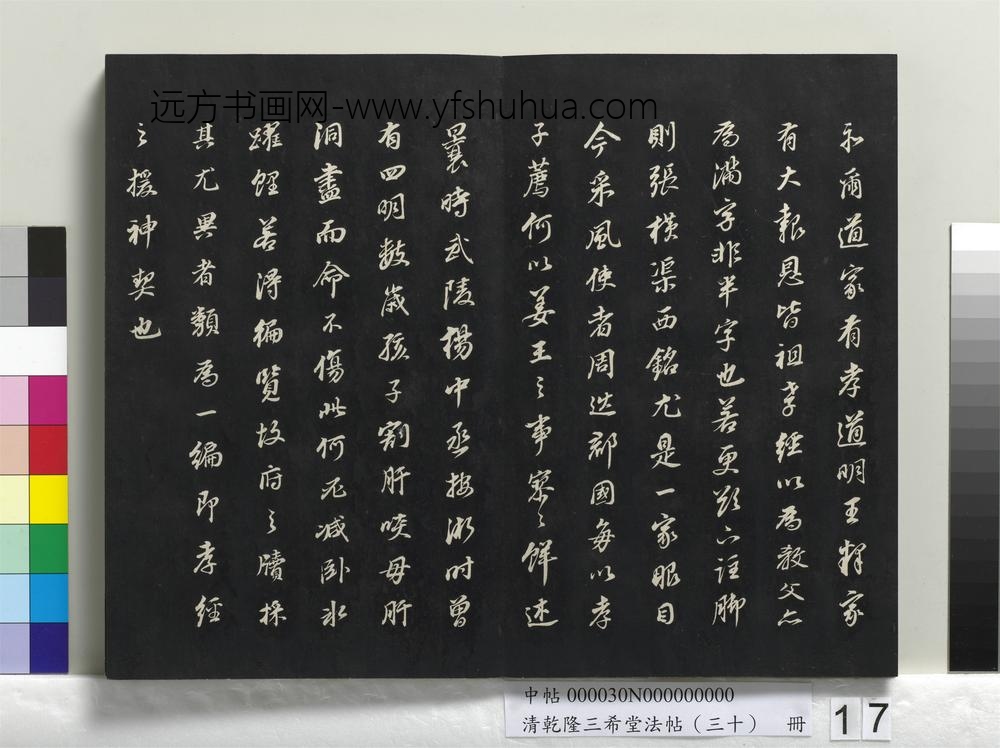 远方书画网-www.yfshuhua.com
爾道家有孝道明王釋家
有大報恩皆祖孝經以為教父亦
為滿字非半字也若更下註脚
則張橫渠西銘尤是一家眼目
今采風使者周巡郡國每以孝
子薦何以姜王之事寥々鮮述
曩時武陵楊中丞按浙时曾
有四明數歲孩子割肝啖母肝
洞盡而命不傷此何減卧冰
躍鯉若得徧覽故府之牘採
其尤異者類為一編即孝經
之援神契也
中帖 000030N000000000
清乾隆三希堂法帖（三十） 冊
17